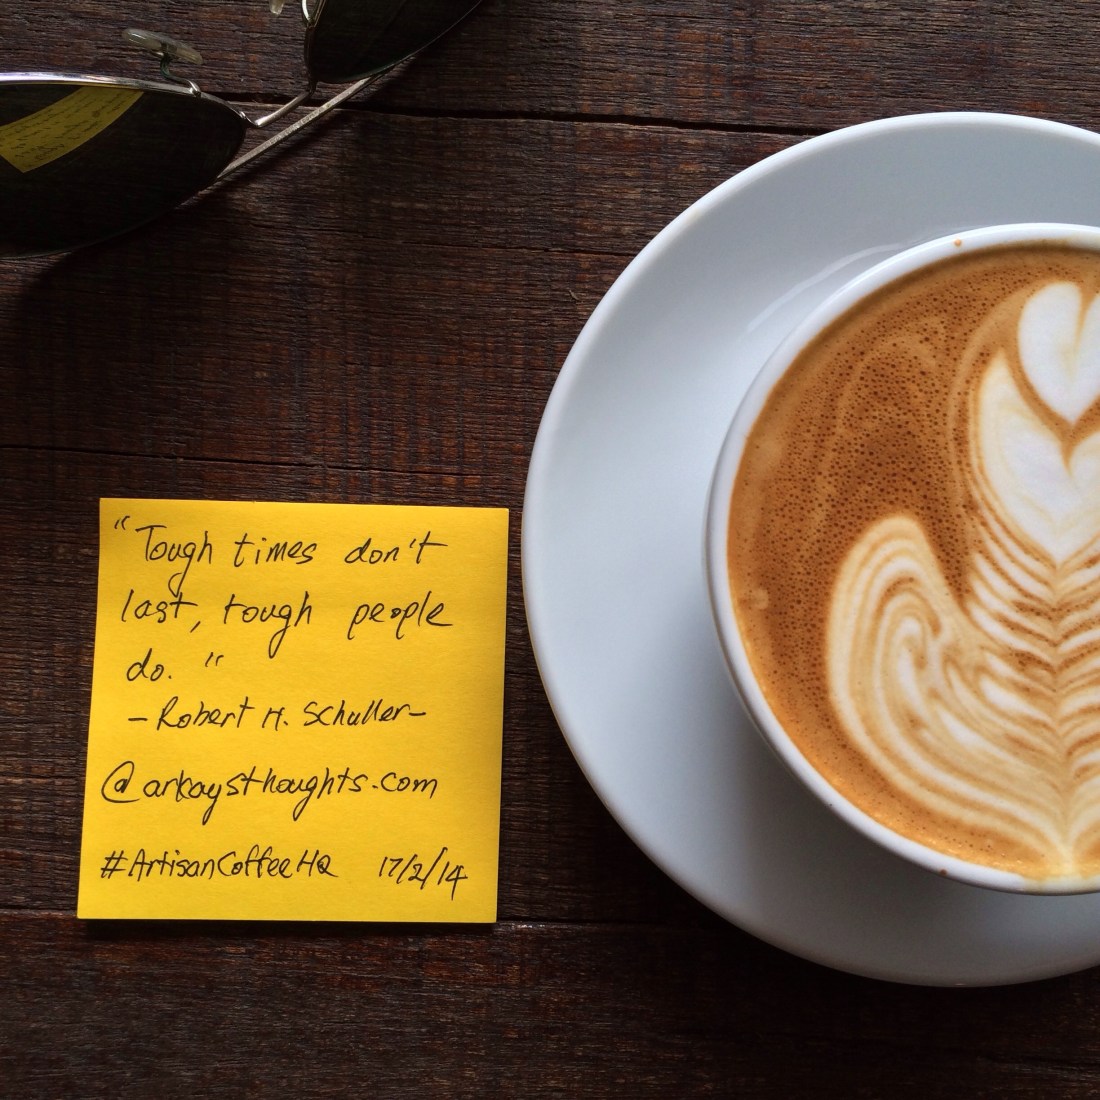 “Tough times don't
last, tough people
do.”
-Robert H. Schuller-
@arkaysthoughts.com
#ArtisanCoffeeHQ 17/2/14